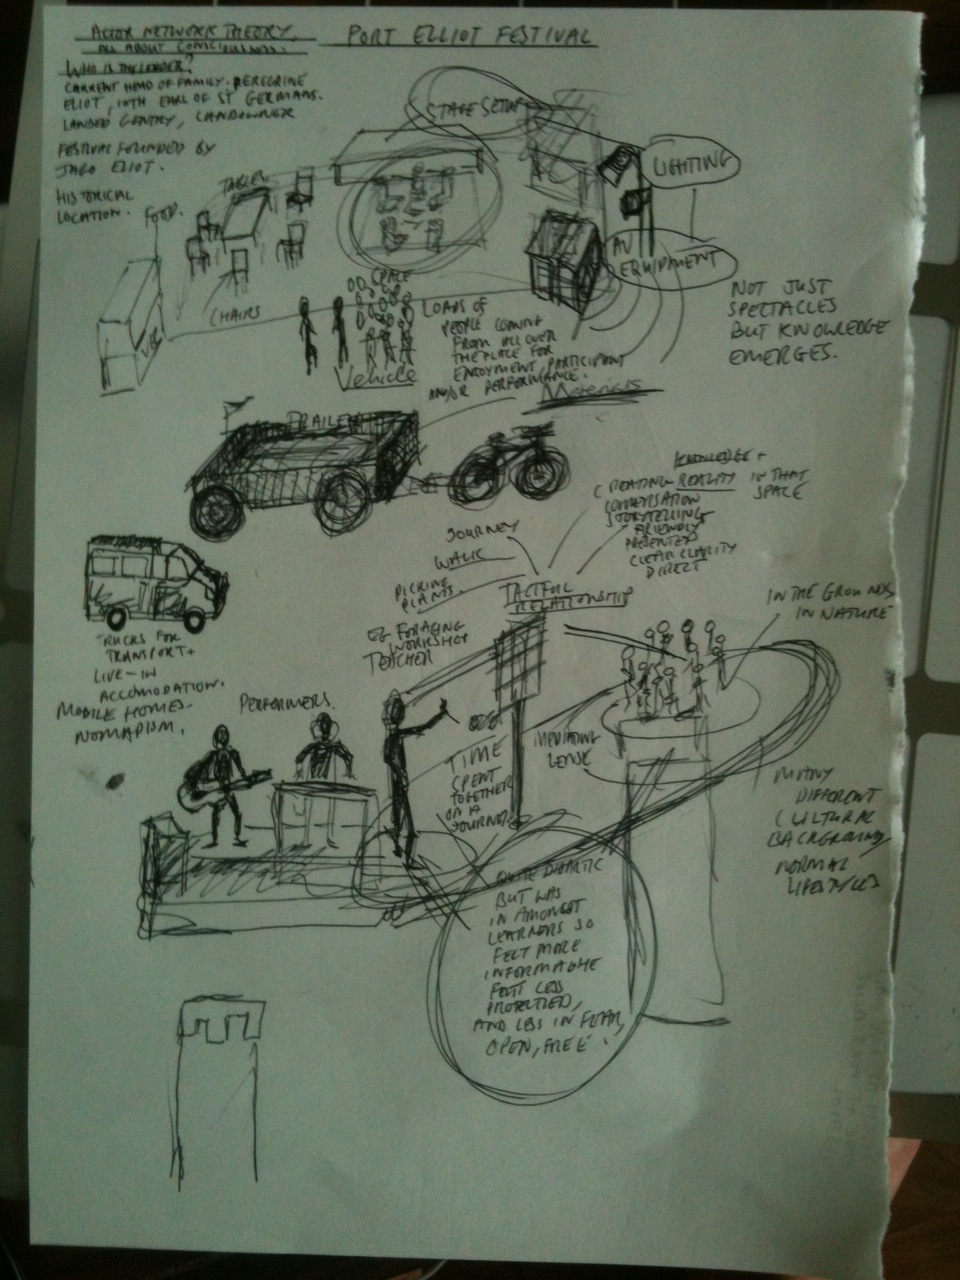 ACTOR NETWORK THEORY.
ALL ABOUT CONSCIOUSNESS.
PORT ELLIOT FESTIVAL
WHO IS THE LEADER?
CURRENT HEAD OF FAMILY. PEREGRINE
ELIOT, 10TH EARL OF ST GERMANS.
LANDED GENTRY, LANDOWNER
FESTIVAL FOUNDED BY
JAGO ELIOT.
HISTORICAL
LOCATION.
FOOD.
TABLES
CHAIRS
STAGE SETUP
SPACE
LIGHTING
AV
EQUIPMENT
NOT JUST
SPECTACLES
BUT KNOWLEDGE
EMERGES.
LOADS OF
PEOPLE COMING
FROM ALL OVER
THE PLACE FOR
ENJOYMENT, PARTICIPANT
AND/OR PERFORMANCE.
Vehicle
Materials
TRAILER
KNOWLEDGE +
CREATING REALITY IN THAT
SPACE
CONVERSATION
STORYTELLING
FRIENDLY
PRESENTED
CLEAR CLARITY
DIRECT
JOURNEY
WALK
PICKING
PLANTS.
TACTFUL
RELATIONSHIP
EG FORAGING
WORKSHOP
TEACHER
IN THE GROUNDS
IN NATURE
TRUCKS FOR
TRANSPORT +
LIVE-IN
ACCOMODATION.
MOBILE HOMES.
NOMADISM.
PERFORMERS.
TIME
SPENT
TOGETHER
ON A
JOURNEY
MEDIATING
LENSE
MANY
DIFFERENT
CULTURAL
BACKGROUNDS
NORMAL
LIFESTYLES
QUITE DIDACTIC
BUT WAS
IN AMONGST
LEARNERS SO
FELT MORE
INFORMATIVE
FELT LESS
PROTECTED,
AND LESS IN FEAR,
OPEN, FREE.